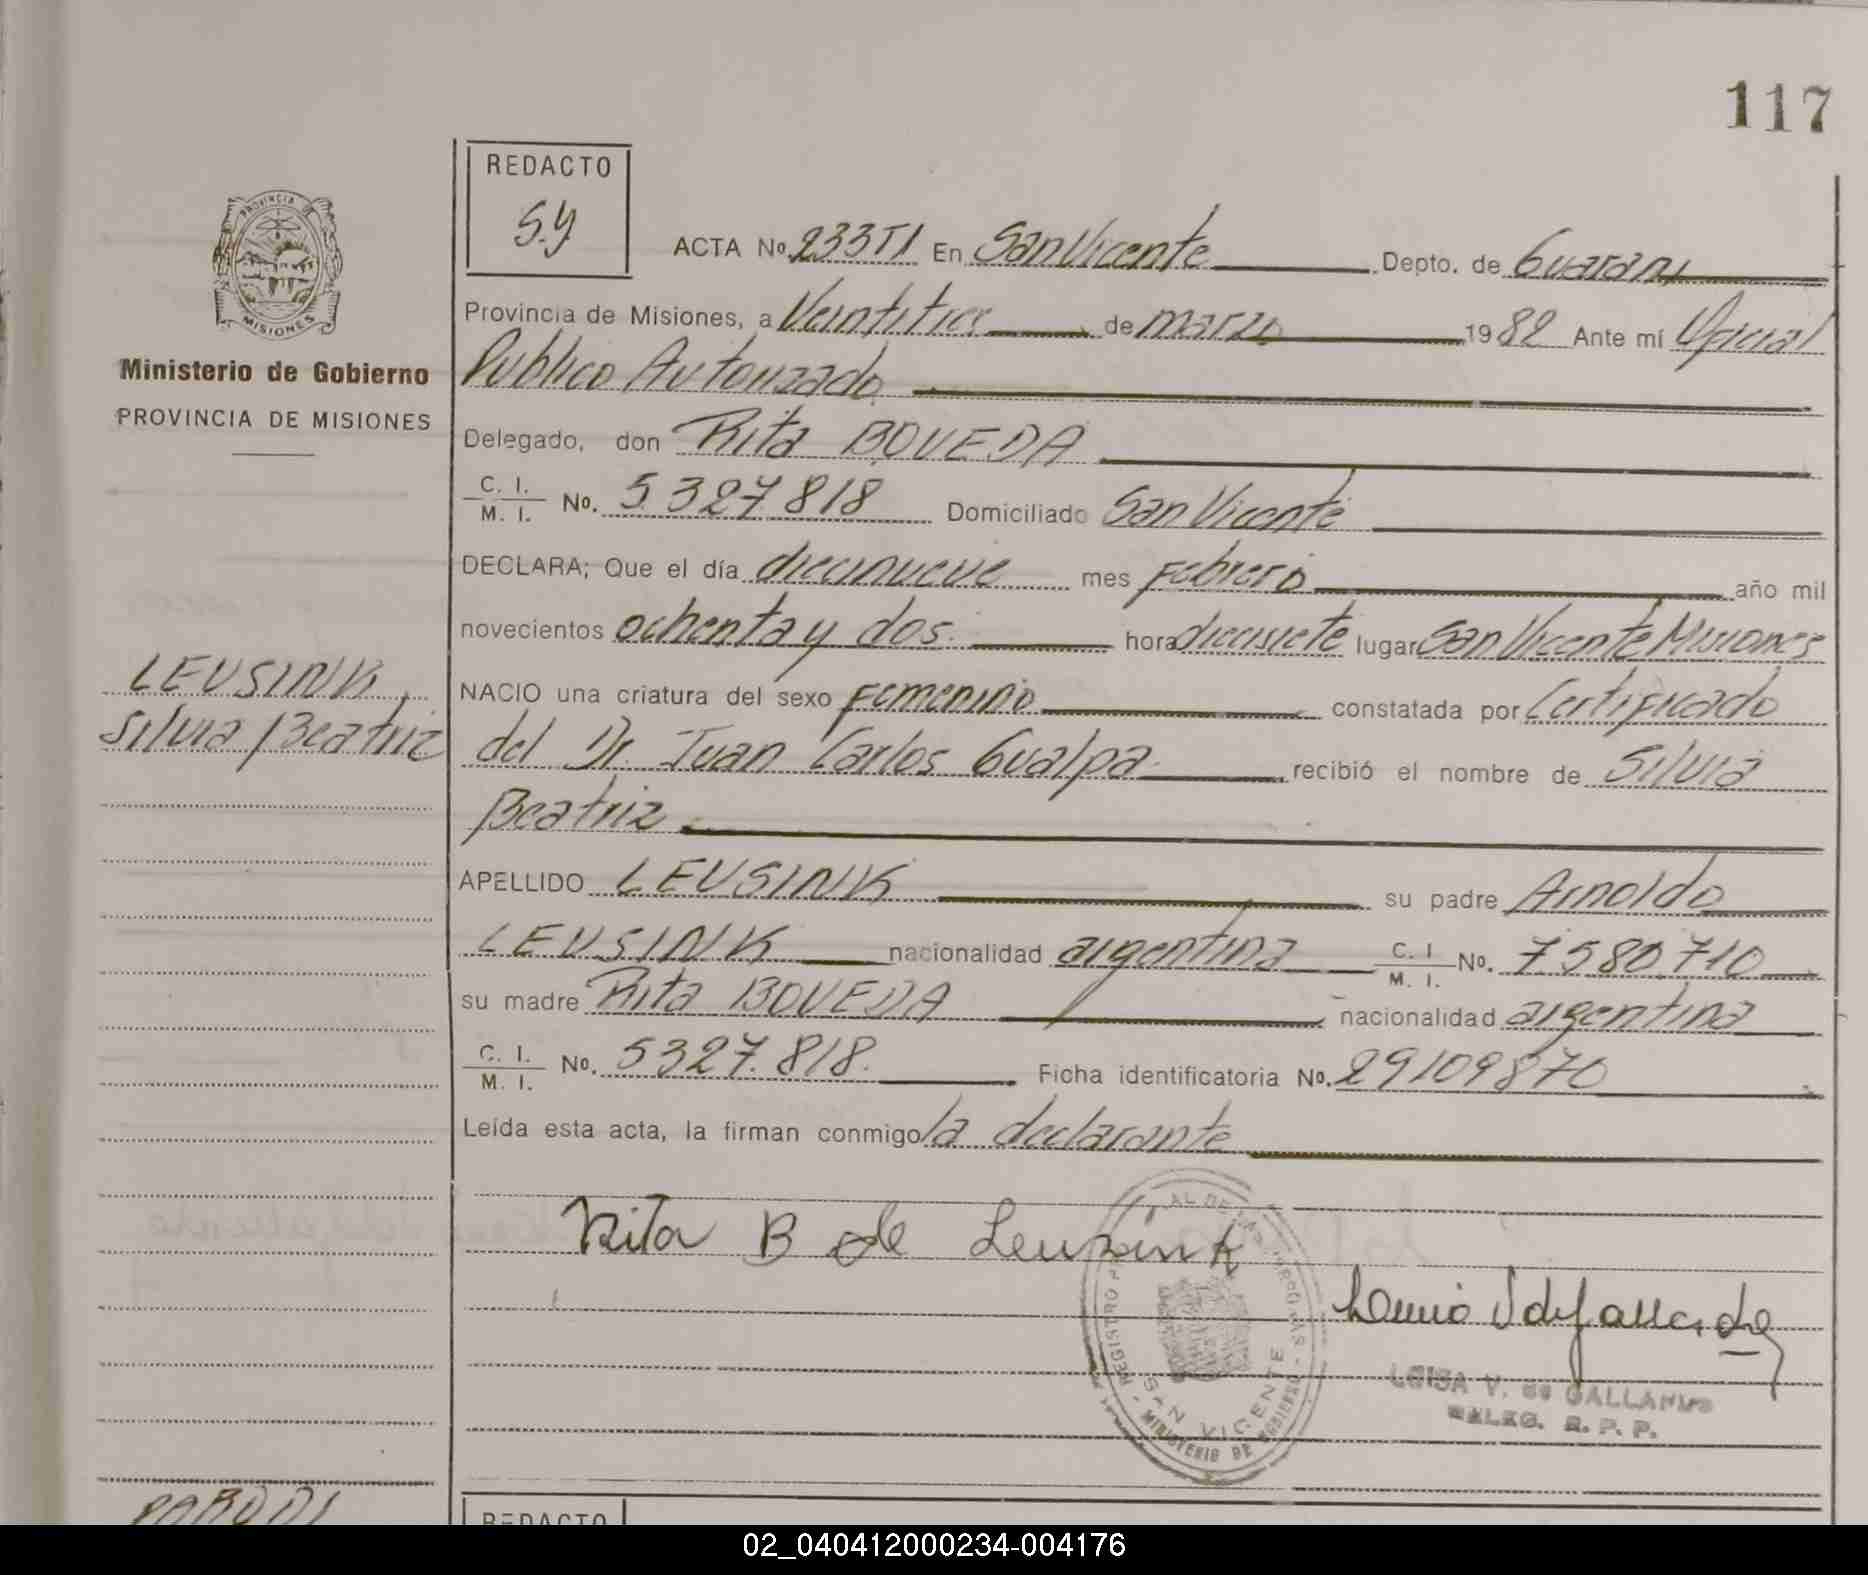 117
REDACTO
S.y
ACTA No. 233 T1 En San Vicente Depto. de Guarani
PROVINCIA DE
MISIONES
Provincia de Misiones, a Veintitres de marzo 1982 Ante mí Oficial
Ministerio de Gobierno
Publico Autorizado
PROVINCIA DE MISIONES
Delegado, don Rita BOVEDA
C. I.
M. I. No. 5.327.818 Domiciliado San Vicente
DECLARA; Que el día diecinueve mes Febrero año mil
novecientos ochenta y dos. hora diecisiete lugar San Vicente Misiones
LEUSINK,
Silvia Beatriz
NACIO una criatura del sexo Femenino constatada por Certificado
del Dr. Juan Carlos Gualpa recibió el nombre de Silvia
Beatriz
APELLIDO LEUSINK su padre Arnoldo
LEUSINK nacionalidad argentina C. I. M. I. No. 7.580.710
su madre Rita BOVEDA nacionalidad argentina
C. I.
M. I. No. 5327.818. Ficha identificatoria No. 29109870
Leída esta acta, la firman conmigo la declarante
Rita B de Leusink
SAN VICENTE
MINISTERIO DE GOBIERNO
LUISA V. de GALLARDO
DELEG. R. P. P.
REDACTO
02_040412000234-004176